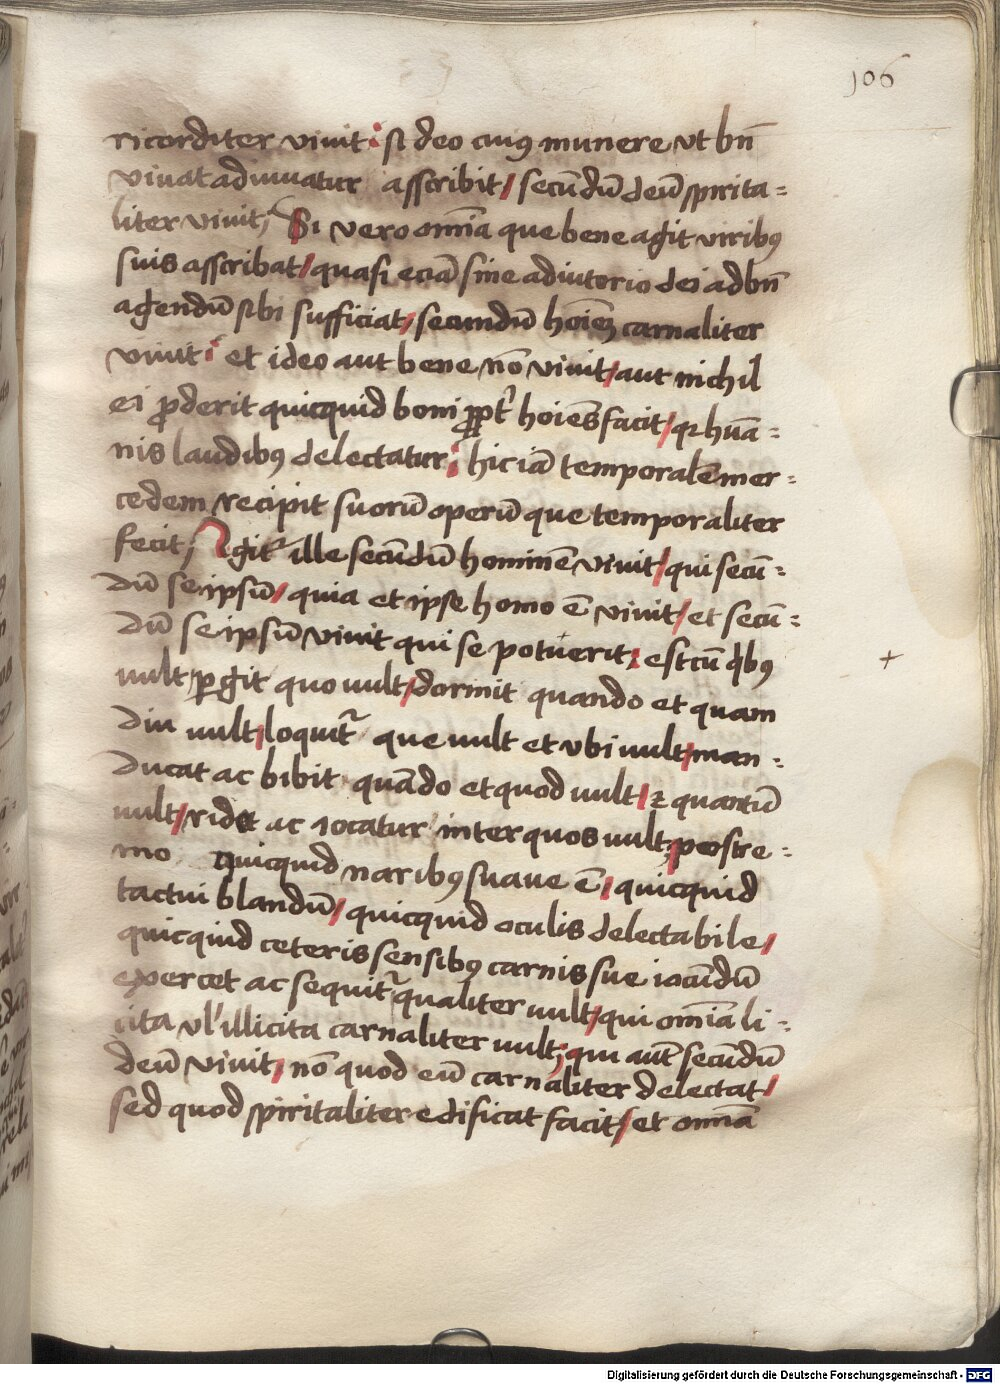 106
ricorditer viuit: si deo cuius munere vt bn̄
viuat adiuuatur asscribit / secūdū deū spirita=
liter viuit, Si vero om̄ia que bene agit viribꝰ
suis asscribat / quasi eciā sine adiutorio dei ad bn̄
agendū sibi sufficiat / secundū hoīeꝫ carnaliter
viuit: et ideo aut bene nō viuit / aut nichil
ei ꝓderit quicquid boni ꝓpt͛ hoīes facit / qꝛ huā=
nis laudibꝰ delectatur; hic iā temporalē mer=
cedem recipit suorū operū que temporaliter
fecit, Igit᷑ ille secūdū hominē viuit / qui secū=
dū se ipsū / quia et ipse homo ē viuit / et secū=
dū se ipsū viuit qui se potuerit: est cū qͥbꝰ
+
uult / ꝑgit quo uult / dormit quando et quam
diu uult / loquit᷑ que uult et vbi uult / man=
ducat ac bibit quādo et quod uult / ⁊ quantū
uult / ridet ac iocatur inter quos uult, postre=
mo quicquid naribꝰ suaue ē / quicquid
tactui blandū / quicquid oculis delectabile /
quicquid ceteris sensibꝰ carnis sue iocūdū
expercet ac sequit᷑ qualiter uult / qui om̄ia li=
cita vl' illicita carnaliter uult; qui aūt secūdū
deū viuit / nō quod eū carnaliter delectat /
sed quod spiritaliter edificat facit / et om̄ia
Digitalisierung gefördert durch die Deutsche Forschungsgemeinschaft - DFG